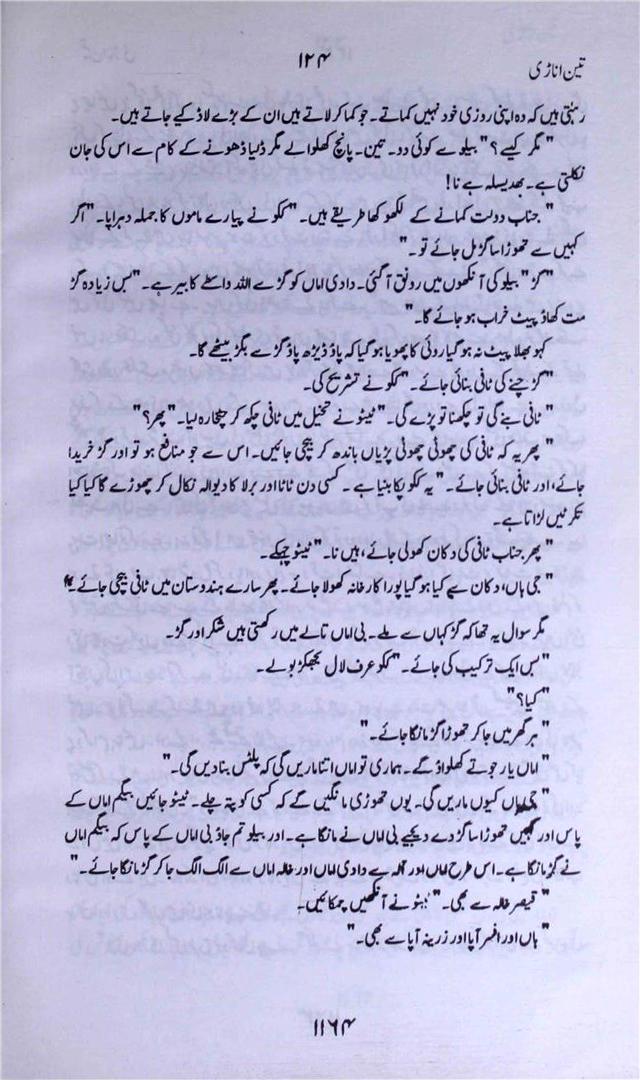 تین اناڑی
۱۲۴
رہتی ہیں کہ وہ اپنی روزی خود نہیں کماتے۔ جو کما کر لاتے ہیں ان کے بڑے لاڈ کیے جاتے ہیں۔
"مگر کیسے؟" ببلو سے کوئی دو۔ تین۔ پانچ کھلوا لے مگر ڈلیا ڈھونے کے کام سے اس کی جان
نکلتی ہے۔ بھدیسلہ ہے نا!
"جناب دولت کمانے کے لکھو کھا طریقے ہیں۔" ککو نے پیارے ماموں کا جملہ دہرایا۔ "اگر
کہیں سے تھوڑا سا گڑ مل جائے تو۔"
"گڑ" ببلو کی آنکھوں میں رونق آ گئی۔ دادی اماں کو گڑ سے اللہ واسطے کا بیر ہے۔ "بس زیادہ گڑ
مت کھاؤ پیٹ خراب ہو جائے گا۔"
کہو بھلا پیٹ نہ ہو گیا روئی کا پھویا ہو گیا کہ پاؤ ڈیڑھ پاؤ گڑ سے بگڑ بیٹھے گا۔
"گڑ چنے کی ٹافی بنائی جائے۔" ککو نے تشریح کی۔
"ٹافی بنے گی تو چکھنا تو پڑے گی۔" ٹیٹو نے تخیل میں ٹافی چکھ کر چٹخارہ لیا۔ "پھر؟"
"پھر یہ کہ ٹافی کی چھوٹی چھوٹی پڑیاں باندھ کر بیچی جائیں۔ اس سے جو منافع ہو تو اور گڑ خریدا
جائے، اور ٹافی بنائی جائے۔" یہ ککو پکا بنیا ہے۔ کسی دن ٹاٹا اور برلا کا دیوالہ نکال کر چھوڑے گا کیا کیا
ٹکریں لڑاتا ہے۔
"پھر جناب ٹافی کی دکان کھولی جائے، ہیں نا۔" ٹیٹو چہکے۔
"جی ہاں، دکان سے کیا ہو گا پورا کارخانہ کھولا جائے۔ پھر سارے ہندوستان میں ٹافی بیچی جائے۔"
مگر سوال یہ تھا کہ گڑ کہاں سے ملے۔ بی اماں تالے میں رکھتی ہیں شکر اور گڑ۔
"بس ایک ترکیب کی جائے۔" ککو عرف لال بجھکڑ بولے۔
"کیا؟"
"ہر گھر میں جا کر تھوڑا گڑ مانگا جائے۔"
"اماں یار جوتے کھلواؤ گے۔ ہماری تو اماں اتنا ماریں گی کہ پلٹس بنا دیں گی۔"
"جی ہاں کیوں ماریں گی۔ یوں تھوڑی مانگیں گے کہ کسی کو پتہ چلے۔ ٹیٹو جائیں بیگم اماں کے
پاس اور کہیں تھوڑا سا گڑ دے دیجیے بی اماں نے مانگا ہے۔ اور ببلو تم جاؤ بی اماں کے پاس کہ بیگم اماں
نے گڑ مانگا ہے۔ اس طرح اماں اور دادی اماں اور خالہ اماں سے الگ الگ جا کر گڑ مانگا جائے۔"
"قیصر خالہ سے بھی۔" نے آنکھیں چمکائیں۔
"ہاں اور افسر آپا اور زرینہ آپا سے بھی۔"
۱۱۶۴